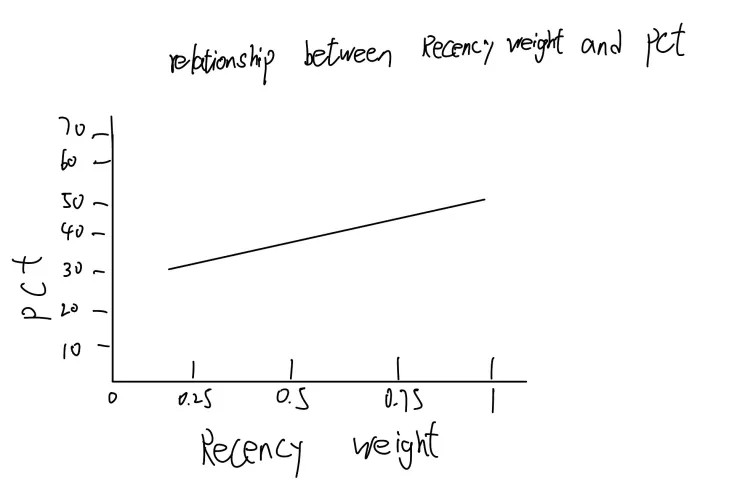 relationship between Recency weight and pct
70
60
50
40
30
20
10
pct
0 0.25 0.5 0.75 1
Recency weight